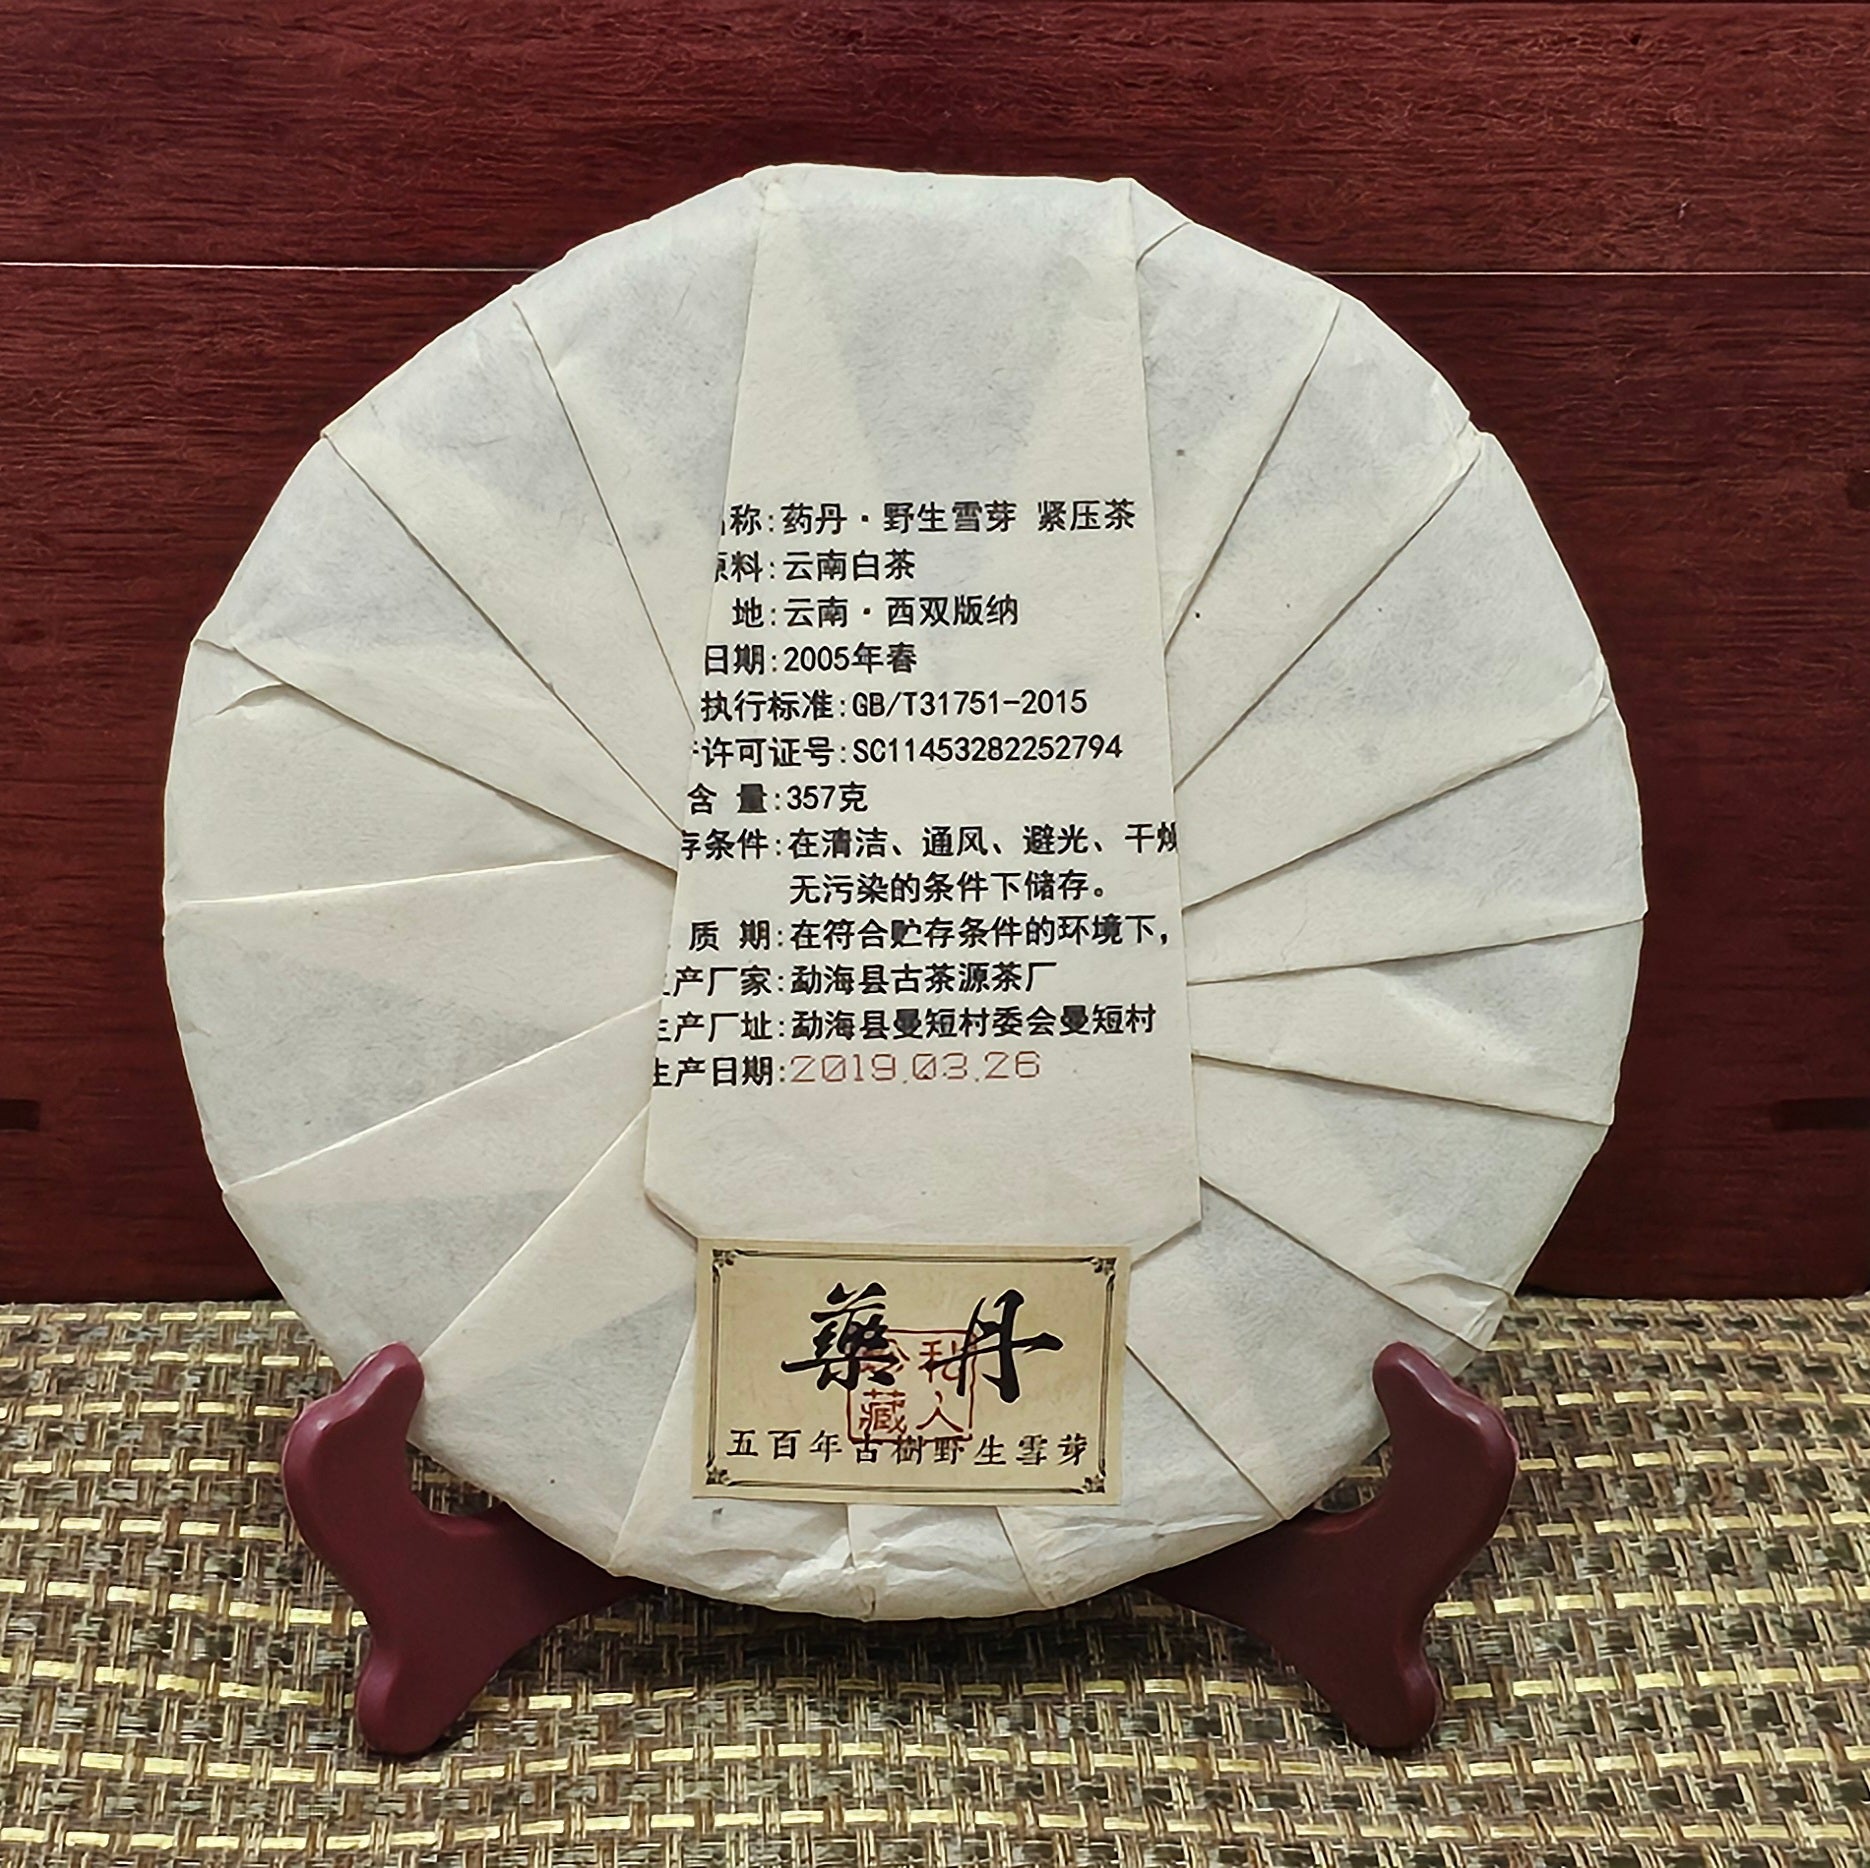 称:药丹·野生雪芽 紧压茶
料:云南白茶
地:云南·西双版纳
日期:2005年春
执行标准:GB/T31751-2015
许可证号:SC11453282252794
含 量:357克
存条件:在清洁、通风、避光、干燥
无污染的条件下储存。
质 期:在符合贮存条件的环境下,
产厂家:勐海县古茶源茶厂
生产厂址:勐海县曼短村委会曼短村
生产日期:2019.03.26
藥丹
私人
珍藏
五百年古樹野生雪芽